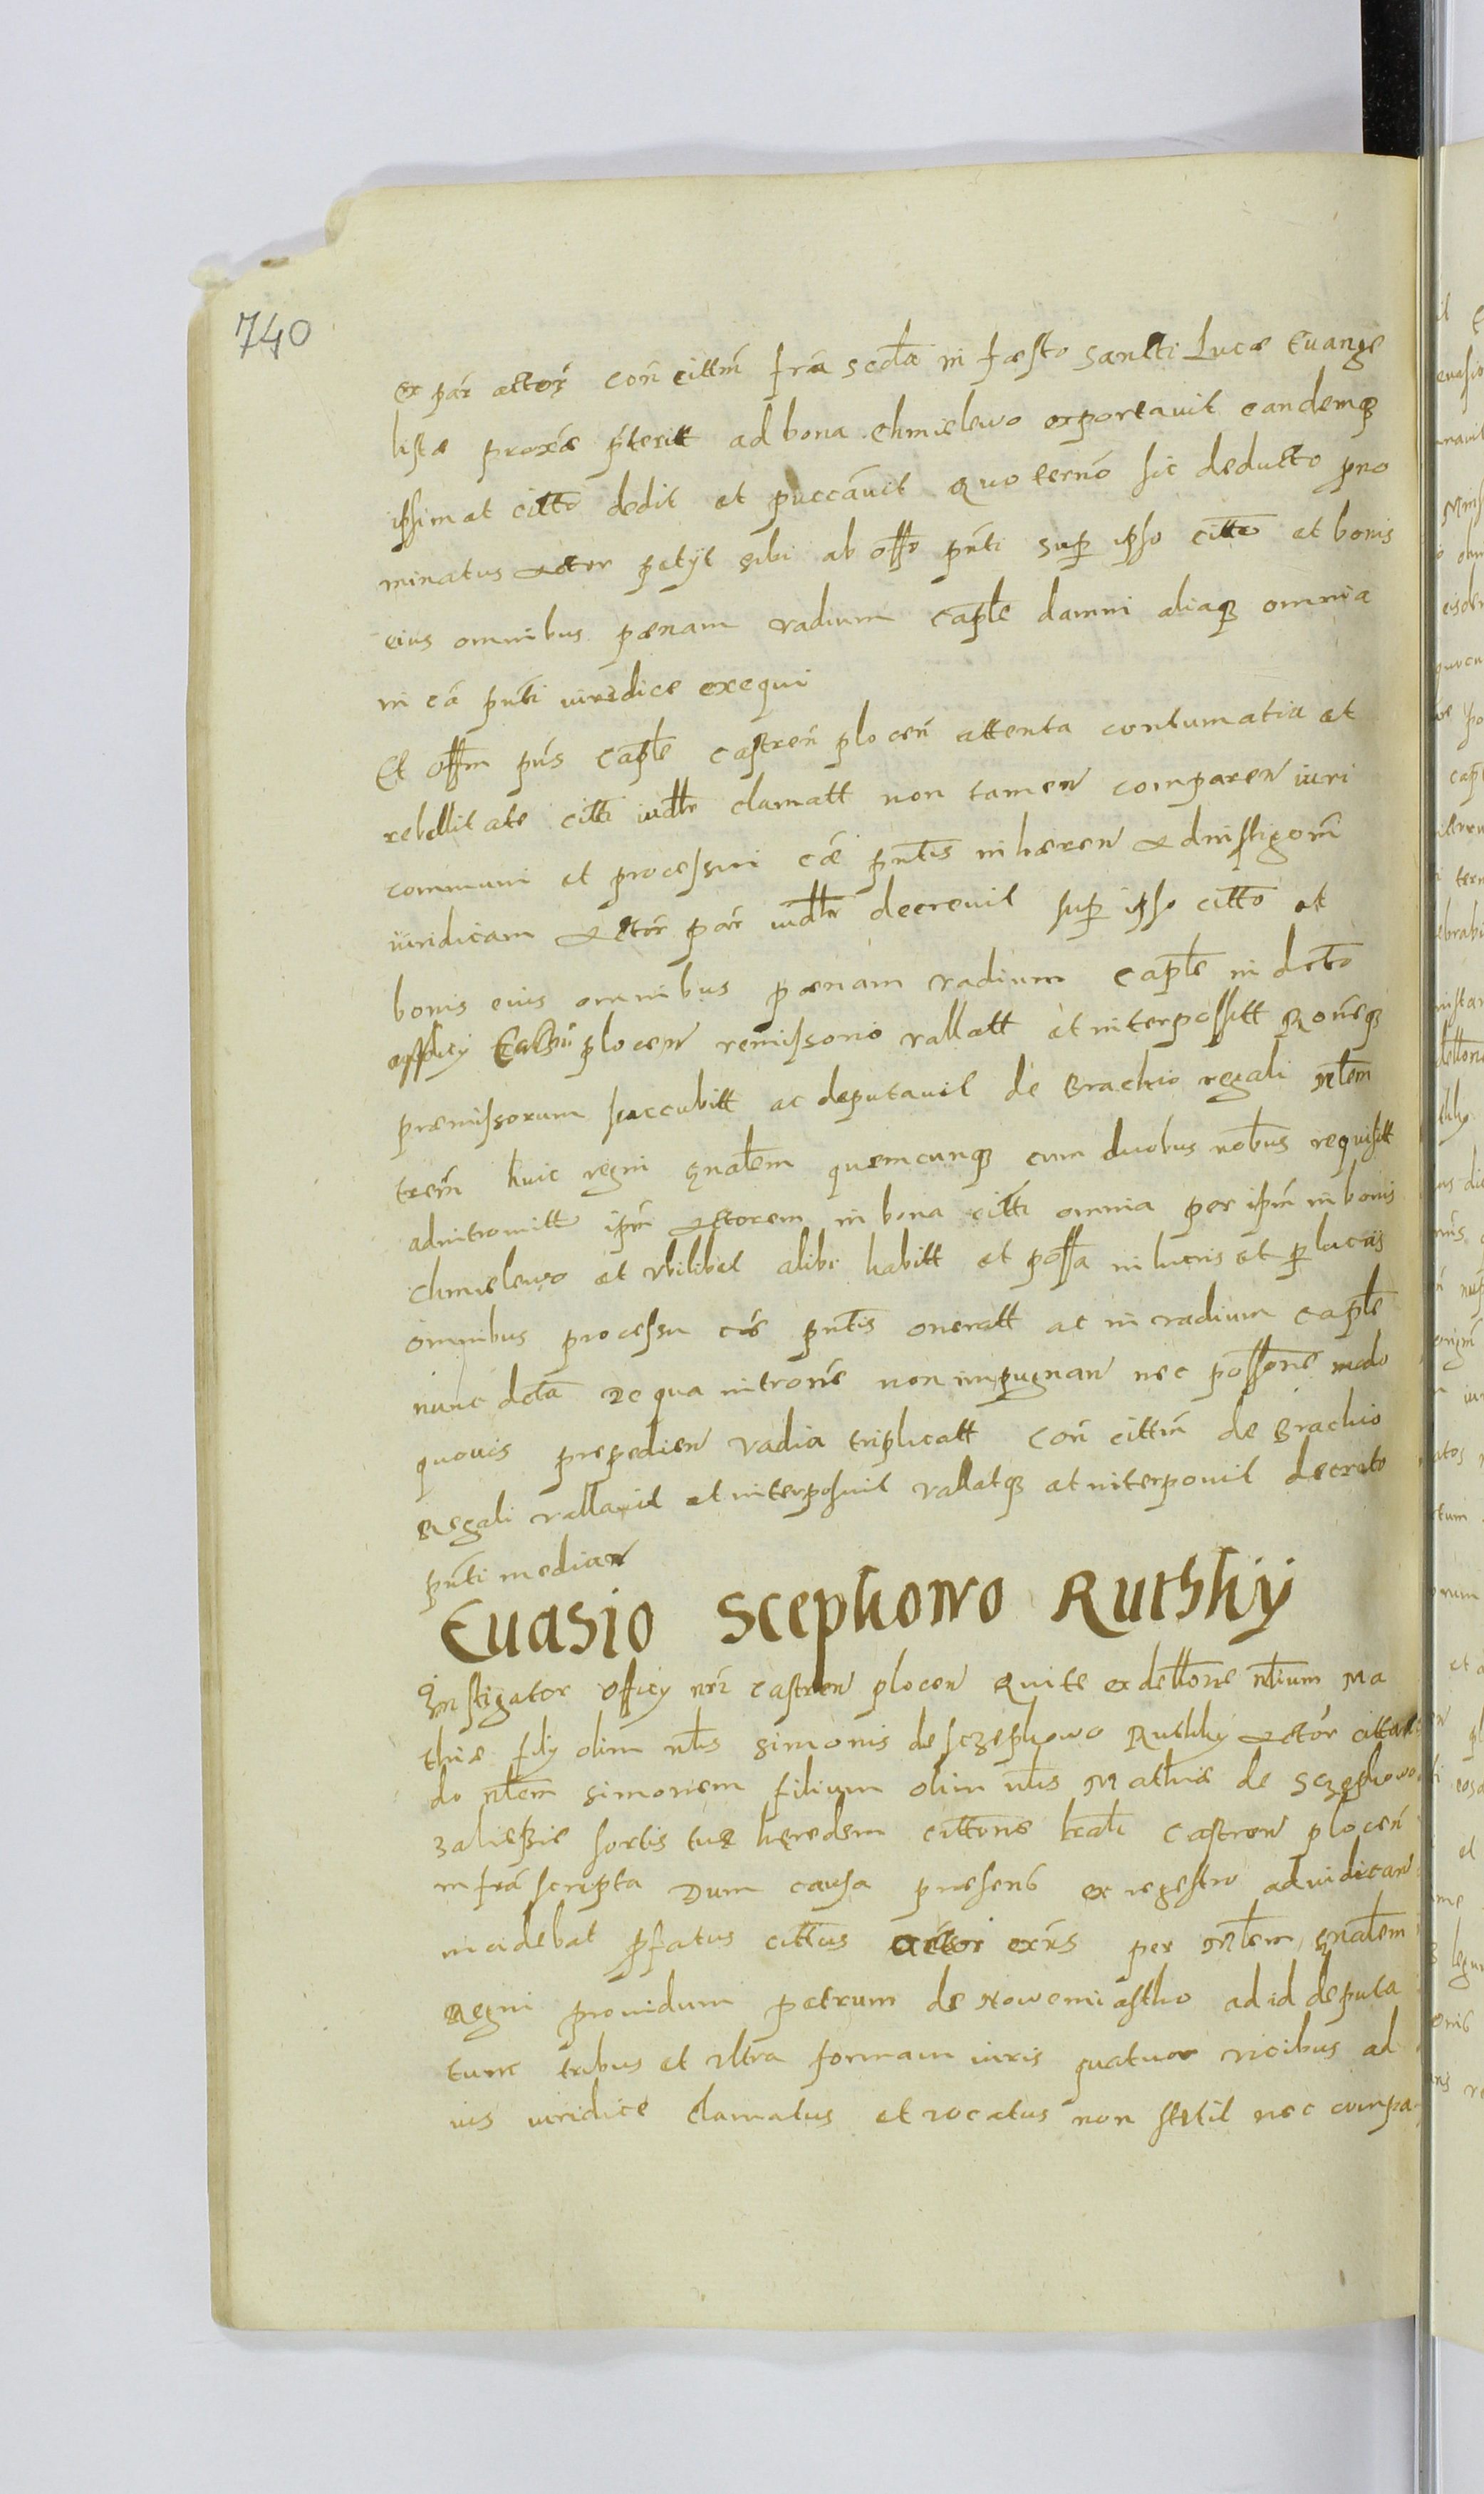 740
ex par̃ actor̃ con̄ cittm̃ fr̃a scd̃a in fæsto Sancti Lucæ Euange
listæ proxæ p̃teritt ad bona Chmielewo exportauit eandemq3
ipsimet citto dedit et puccãuit Quo termõ sic deducto pno
minatus Actor petijt sibi ab offo pñti sup ipso citto et bonis
eius omnibus pænam vadium caple damni aliaq3 omnia
in cã pñti iuridice exequi
Et offm pñs Caple Castren̄ plocen̄ attenta contumatia et
rebellitate citti iudlr clamatt non tamen comparen iuri
communi et processui cæ pñtis inhæren Adinstigom̃
iuridicam Actor̃ par̃ iudlr decreuit sup ipso citto et
bonis eius omnibus pænam vadium Caple in dcto
officy plocen remissorio vallatt et interpossitt Rõneq3
præmissorum succubitt ac deputauit de Brachio regali Nlem
trem̃ huic regni gñalem quemcunq3 cum duobus nobus requisitt
adintromitt ipm̃ Actorem in bona citti omnia per ipm̃ in bonis
Chmielewo et vbilibet alibi habitt et possa in lucris et p lucris
omnibus processu cæ pñtis oneratt ac in vadium Caple
nunc dcta De qua introne non impugnan nec possone modo
quouis prepedien vadia triplicatt Con̄ cittm̃ de Brachio
Regali vallauit et interposuit vallatq3 et interponit decreto
pñti median
Euasio Scephowo Rutshÿ
Instigator Officy nr̃i Castren plocen Rvite ex dellone nlium Ma
thiæ filÿ olim nlis Simonis de Sczephowo Ruthky Actor̃ cittan
do nlem Simonem filium olim nlis Mathiæ de Sczephowo
zaliessie sortis tuę hęredem cittone lrali Castren plocen̄
infrã scripta Dum causa presens ex regestro adiudican
incidebat pfatus cittus Actor exñs per Nlem gñalem
Regni prouidum petrum de Nowemiastho ad id deputa
tum tribus et vltra formam iuris quatuor vicibus ad
ius iuridice clamatus et vocatus non stetit nec compa